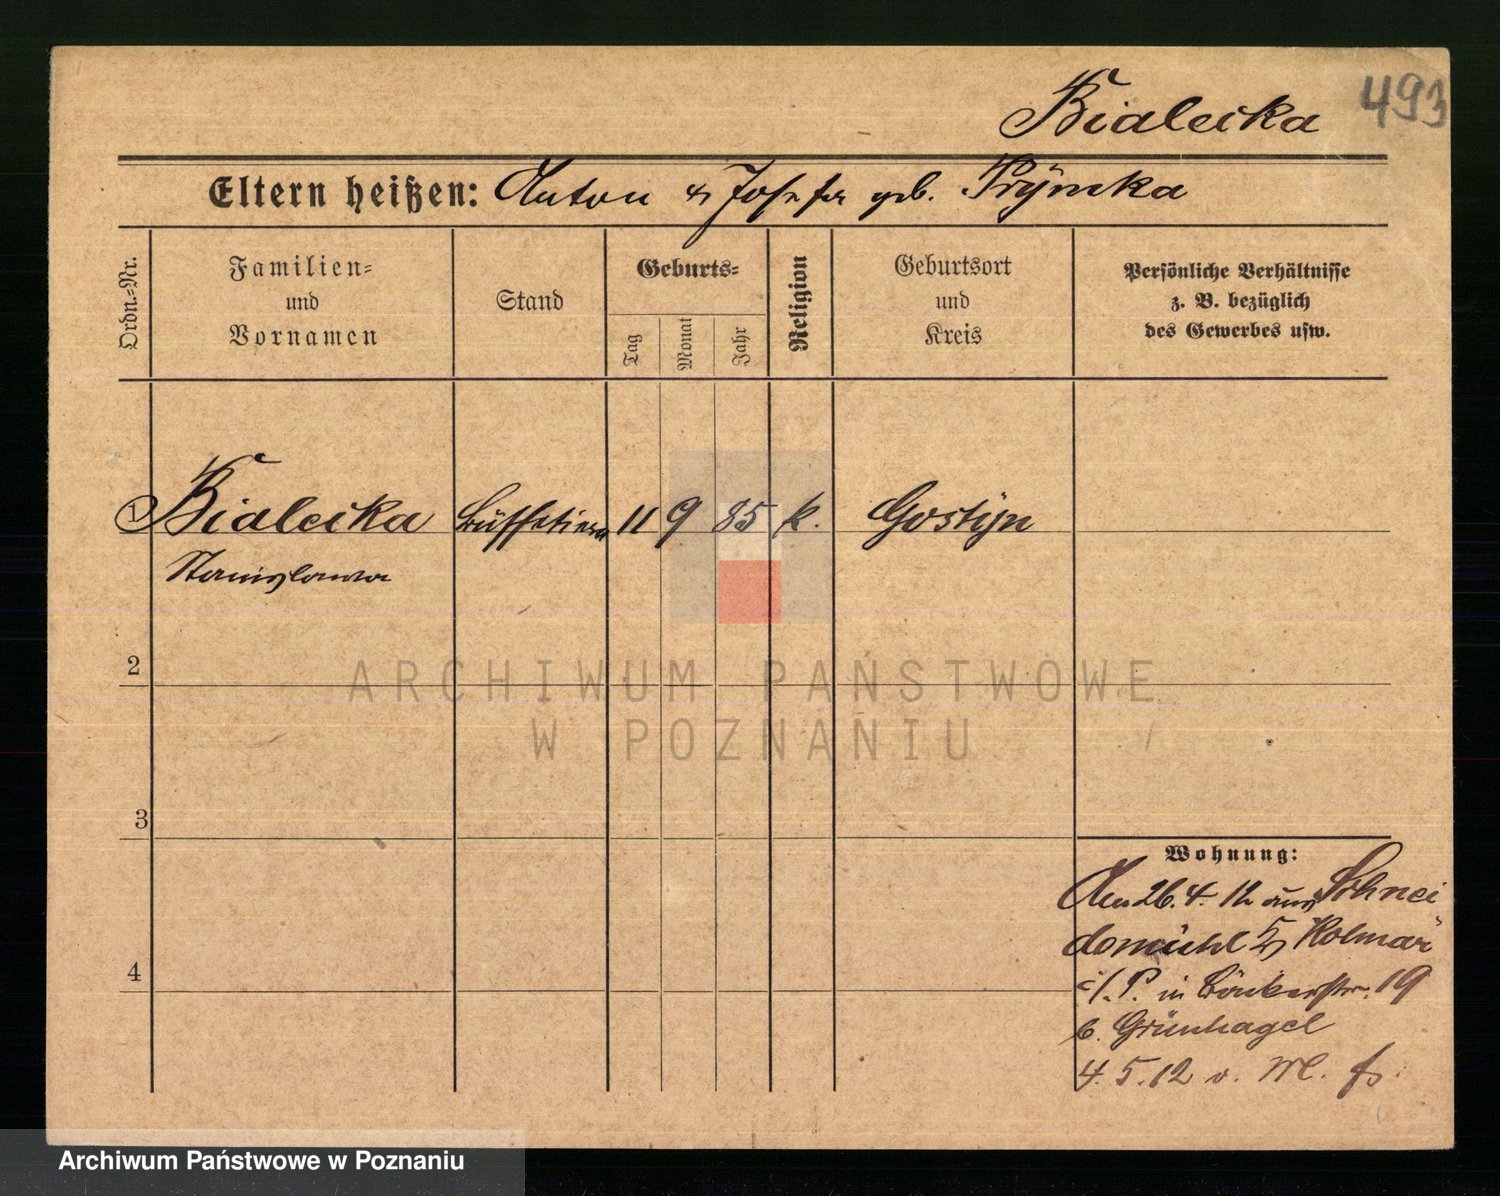 493
Bialecka
Eltern heißen: Anton u Josefa geb. Prymka
Ordn.-Nr.
Familien- und Vornamen
Stand
Geburts-
Tag
Monat
Jahr
Religion
Geburtsort und Kreis
Persönliche Verhältnisse z. B. bezüglich des Gewerbes usw.
1 Bialecka Büffetiere 11 9 85 k. Gostyn
Stanislawa
2
ARCHIWUM PAŃSTWOWE
W POZNANIU
3
Wohnung:
Am 26.4.12 aus Schnei
demühl Kolmar
i/.P. in 19
b. Grünhagel
4.5.12 v. M.
4
Archiwum Państwowe w Poznaniu